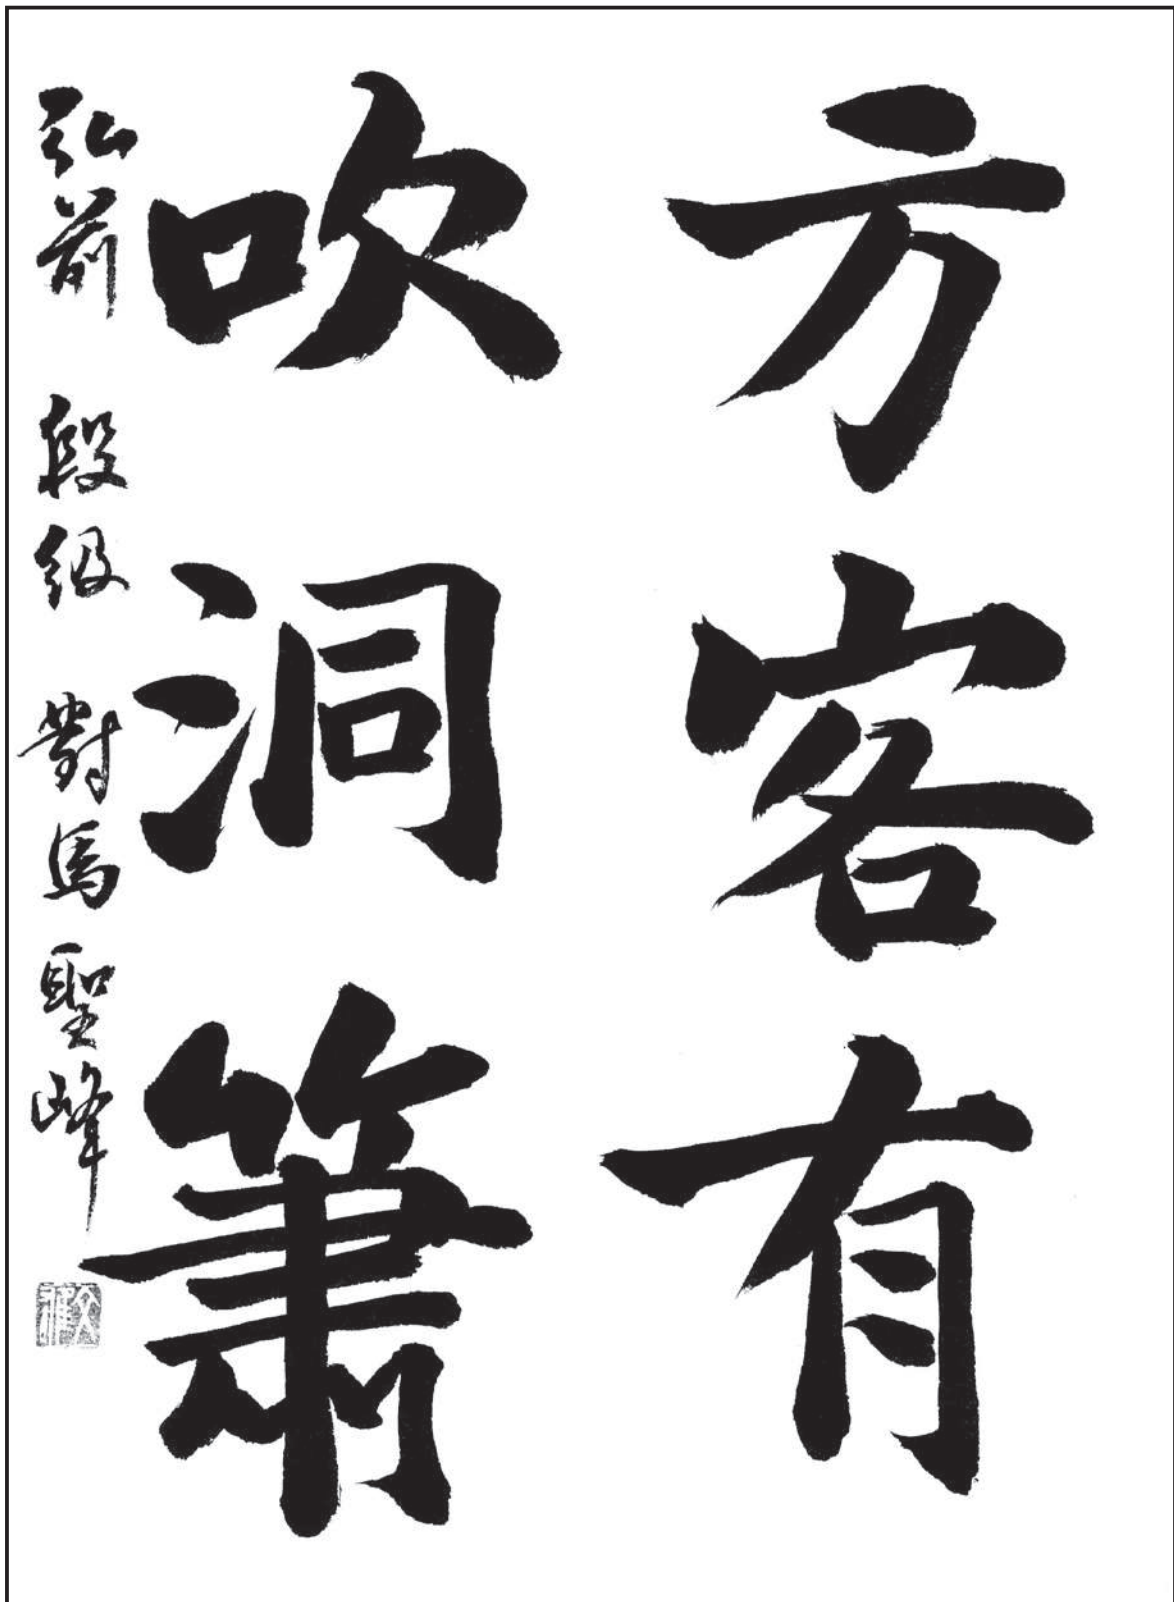 方客有
吹洞簫
弘前 段級 對馬聖峰